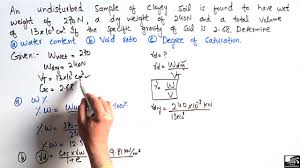 An undisturbed sample of Clayey soil is found to have wet
weight of 290 N, a dry weight of 240N and a total volume
of 13x10³ cm³ if the specific gravity of soil is 2.68. Determine
ⓐ Water content ⓑ Void ratio ⓒ Degree of saturation.
Given:- Wwet = 290
Wdry = 240N
VT = 13x10³ cm³
Gs = 2.68
ⓐ W %
% W =
100%
% W =
W = 12.5
ⓑ
1+e
9.81 KN/m³
γd = ?
γd = Wdry
VT
γ = W
V
γd = 240x10⁻³ KN
13x10³